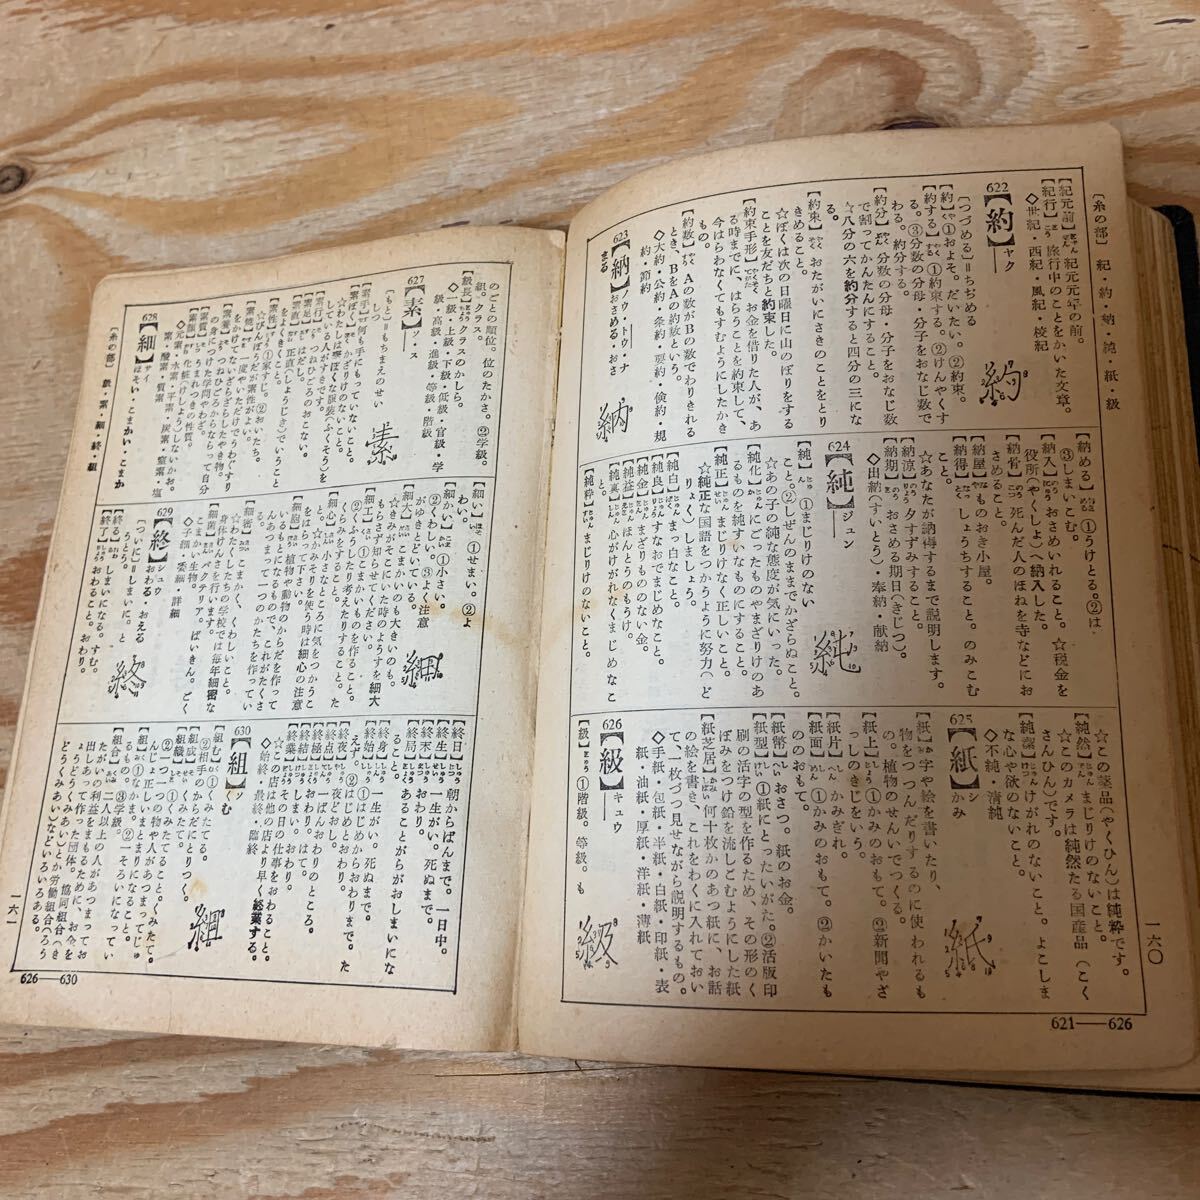 〔糸の部〕 紀・約・納・純・紙・級
一六〇
【紀元前】紀元元年の前。
【紀行】旅行中のことをかいた文章。
◇世紀・西紀・風紀・校紀
622
【約】ヤク
【つづめる】＝ちぢめる
【約】①およそ。だいたい。②約束。
【約する】①約束する。②けんやくする。③分数の分母・分子をおなじ数で
わる。約分する。
【約分】分数の分母・分子をおなじ数
で割ってかんたんにすること。
☆八分の六を約分すると四分の三にな
る。
【約束】おたがいにさきのことをとり
きめること。
☆ぼくは次の日曜日に山のぼりをする
ことを友だちと約束した。
【約束手形】お金を借りた人が、あ
る時までに、はらうことを約束して、
今はらわなくてもすむようにしたかき
もの。
【約数】Aの数がBの数でわりきれる
とき、BをAの約数という。
◇大約・公約・条約・要約・倹約・規
約・節約
623
【納】ノウ・トウ・ナ
おさめる・おさ
まる
【納める】①うけとる。②は
③しまいこむ。
【納入】おさめいれること。☆税金を
役所（やくしょ）へ納入した。
【納骨】死んだ人のほねを寺などにお
さめること。
【納屋】ものおき小屋。
【納得】しょうちすること。のみこむ
こと。
☆あなたが納得するまで説明します。
【納涼】夕すずみすること。
【納期】おさめる期日（きじつ）。
◇出納（すいとう）・奉納・献納
624
【純】ジュン
【純】①まじりけのない
こと。②しぜんのままでかざらぬこと。
☆あの子の純な態度が気にいった。
【純化】にごったものやまざりけのあ
るものを純すいなものにすること。
【純正】まじりけなく正しいこと。
☆純正な国語をつかうように努力（ど
りょく）しましょう。
【純白】まっ白なこと。
【純良】すなおでまじめなこと。
【純金】まざりもののない金。
【純益】ほんとうのもうけ。
【純真】心がけがれなくまじめなこ
と。
【純粋】まじりけのないこと。
☆この薬品（やくひん）は純粋です。
【純然】まじりけのないこと。
☆このカメラは純然たる国産品（こく
さんひん）です。
【純潔】けがれのないこと。よこしま
な心や欲のないこと。
◇不純・清純
625
【紙】シ
かみ
【紙】字や絵を書いたり、
物をつつんだりするのに使われるも
の。植物のせんいでつくる。
【紙上】①かみのおもて。②新聞やざ
っしのきじをいう。
【紙片】かみきれ。
【紙面】①かみのおもて。②かいたも
ののおもて。
【紙幣】おさつ。紙のお金。
【紙型】①紙にとったいがた。②活版印
刷の活字の型を作るため、その形のく
ぼみをつけ鉛を流しこむようにした紙
【紙芝居】何十枚かのあつ紙に、お話
の絵を書き、これをわくに入れておい
て、一枚づつ見せながら説明するもの。
◇手紙・包紙・半紙・白紙・印紙・表
紙・油紙・厚紙・洋紙・薄紙
626
【級】キュウ
【級】①階級。等級。も
621—626
のごとの順位。位のたかさ。②学級。
組。クラス。
【級長】クラスのかしら。
◇一級・上級・下級・低級・官級・学
級・高級・進級・等級・階級
627
【素】ソ・ス
【もと】＝もちまえのせい
しつ。
【素手】何も手にもっていないこと。
【素ぼく】かざりけのないこと。
☆わたしは素ぼくな服装（ふくそう）を
している人がすきです。
【素行】つねひごろのおこない。
【素足】はだし。
【素直】正直（しょうじき）でいうこと
をよくきくこと。
【素性】①家すじ。②おいたち。
☆びんぼうだが素性がよい。
【素焼】一度やいただけでうわぐすり
をかけてないざらざらしたやき物。
【素養】つねひごろからならって自分
の身につけた学問やわざ。
【素質】うまれつきの性質。
【素顔】化粧（けしょう）しないかお。
◇元素・水素・平素・炭素・窒素・塩
素・酸素・質素
628
【細】サイ
ほそい・こまかい・こまか
【細い】①せまい。②よ
わい。
【細かい】①小さい。
②くわしい。③よく注意
がゆきとどいている。
【細大】こまかいものも大きいもの。
☆きみがそこにいた時のようすを細大
もらさず知らせてください。
【細工】①こまかいものを作ること。
②くふうしたり考えたりすること。た
くらみをすること。
【細心】小さなところに気をつかうこ
と。☆かみそりを使う時は細心の注意
をはらって下さい。
【細胞】植物や動物のからだを作って
いるもとになるもので、これがたくさ
んあつまって一つのかたちを作ってい
る。
【細密】こまかく、くわしいこと。
☆わたくしたちの学校では毎年細密な
身体けんさを行います。
【細菌】バクテリア。ばいきん。ごく
こまかい生物。
◇子細・委細・詳細
629
【終】シュウ
おわる・おえる
【ついに】＝しまいに。と
うとう。
【終る】しまいになる。すむ。
【終了】おわること。おわり。
【終日】朝からばんまで。一日中。
【終生】一生がい。死ぬまで。
【終末】おわり。
【終局】あることがらがおしまいにな
ること。
【終身】一生がい。死ぬまで。
【終始】①はじめとおわり。
②はじめからおわりまで。た
えず。
【終夜】一夜どおし。
【終点】いちばんおしまいのところ。
【終極】おわり。はて。
【終結】おしまい。おわり。
【終業】その日の仕事をおわること。
☆この店は他の店より早く終業する。
◇始終・最終・臨終
630
【組】ソ
くむ
【組む】①くみたてる。
②相手のからだにとりつく。
【組成】くみたてる。
【組織】①くみたてること。くみたて。
②一つ一つの物や人があつまってじゅ
んじょ正しいまとまりになること。
【組】①なかま。②一そろいになってい
るもの。③学級。
【組合】二人以上の人があつまってお
たがいの利益をまもるために、お金を
出しあって作った団体。協同組合（き
ょうどうくみあい）とか労働組合（ろう
どうくみあい）などいろいろある。
〔糸の部〕 級・素・細・終・組
一六一
626—630